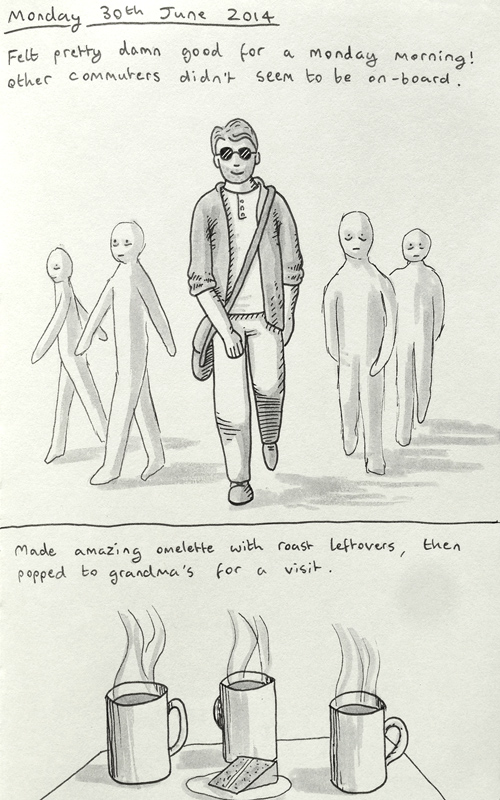 Monday 30th June 2014
Felt pretty damn good for a monday morning!
other commuters didn't seem to be on-board.
Made amazing omelette with roast leftovers, then
popped to grandma's for a visit.